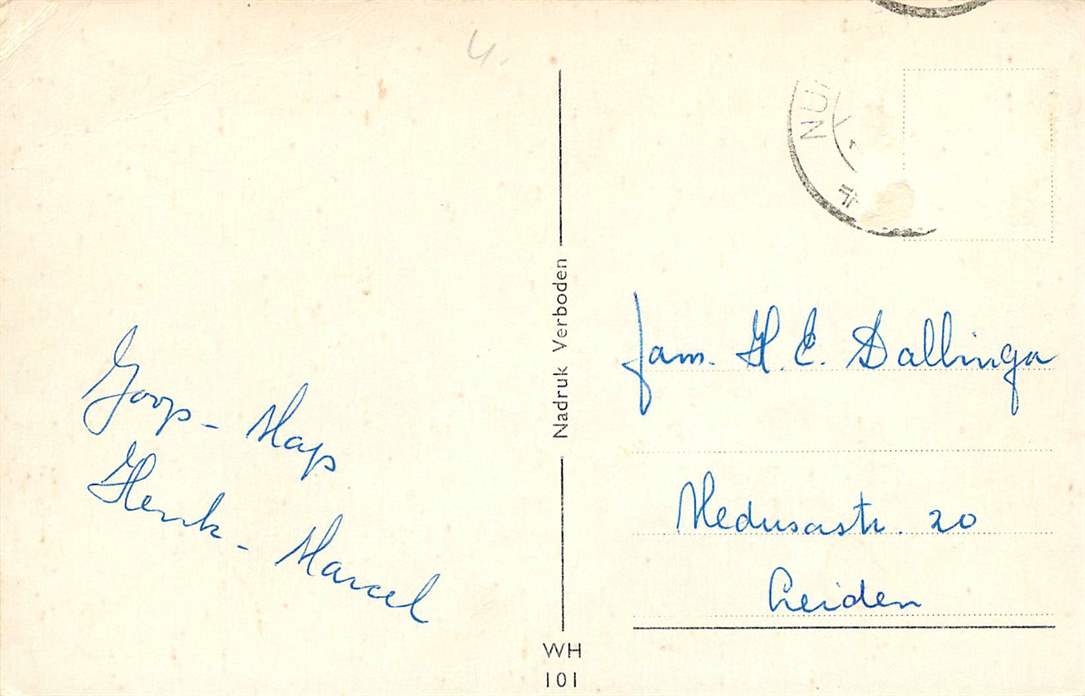 4.
NU
Joop - Map
Henk - Marcel
Nadruk Verboden
WH
101
fam. H. E. Dallinga
Medusastr. 20
Leiden